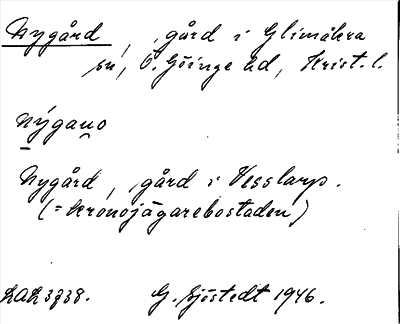 Nygård, gård i Glimåkra
sn, Ö. Göinge hd, Krist. l.
nýgau̯o
Nygård, gård i Vesslarp.
(= Kronojägarebostaden)
G. Sjöstedt 1946.